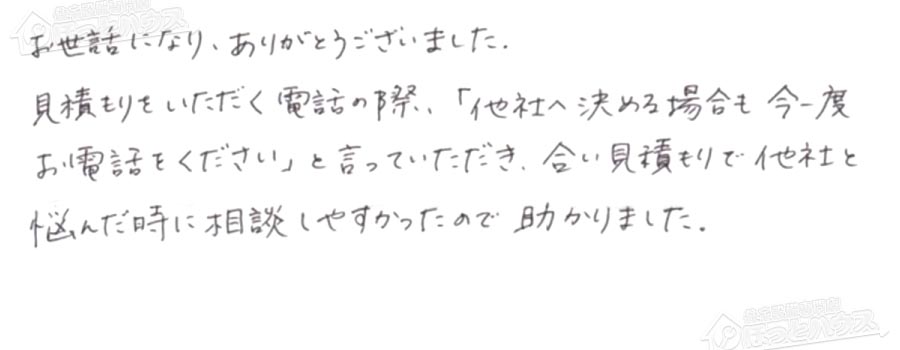 お世話になり、ありがとうございました.
見積もりをいただく電話の際、「他社へ決める場合も今一度
お電話をください」と言っていただき、合い見積もりで他社と
悩んだ時に相談しやすかったので助かりました.
ほっとハウス
ほっとハウス